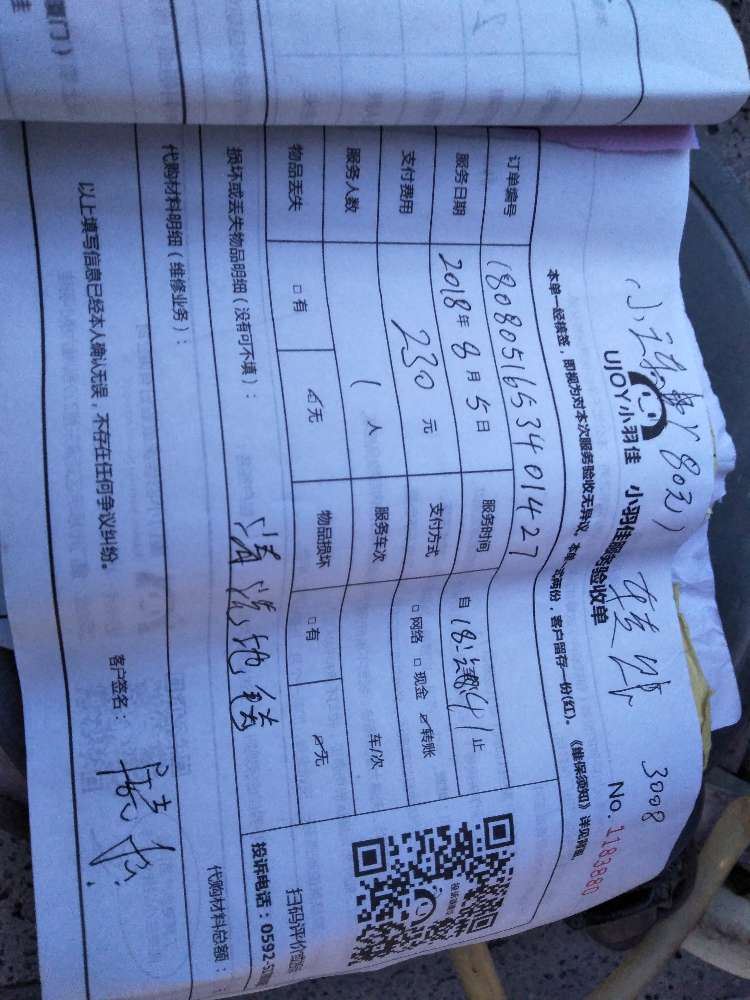 厦门）
佳
3008
转账
（80元）
UJOY小羽佳 小羽佳服务验收单
No.1183880
本单一经接签，即视为对本次服务验收无异议。 两份，客户留存一份(红)。《维保须知》详见
订单编号 1808051653401427
服务日期 2018年8月5日 服务时间 自 止
支付费用 230元 支付方式 □网络 □现金 ☑转账
服务人数 1人 服务车次 车/次
物品丢失 □有 ☑无 物品损坏 □有 ☑无
损坏或丢失物品明细（没有可不填）： 清洗地毯
代购材料明细（维修业务）： 代购材料总额：
以上填写信息已经本人确认无误，不存在任何争议纠纷。 客户签名：
扫码评价
投诉电话：0592-5